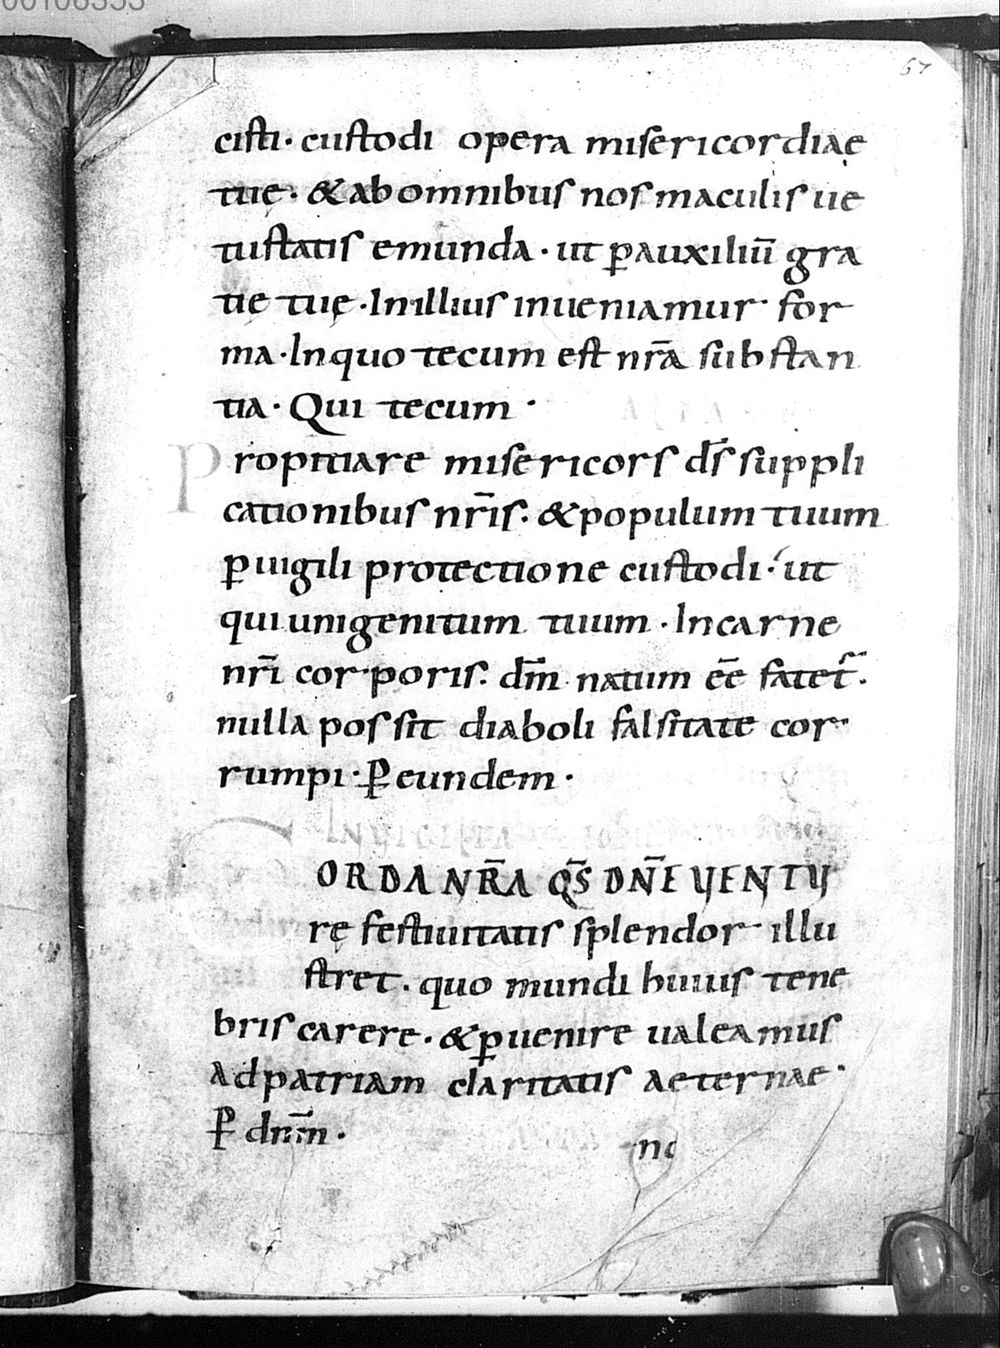 00106353
67
cisti· custodi opera misericordiae
tuę· & ab omnibus nos maculis ue
tustatis emunda· ut p̲ auxiliū gra
tie tuę· In illius inueniamur for
ma· In quo tecum est nr̄a substan
tia· Qui tecum·
Propitiare misericors d̄s suppli
cationibus nr̄is· & populum tuum
p̲uigili protectione custodi· ut
qui unigenitum tuum· In carne
nr̄i corporis· dn̄m natum ēē fatet᷑·
nulla possit diaboli falsitate cor
rumpi· P̲ eundem·
CORDA NR̄A QS̄ DN̄E VENTV
rę festiuitatis splendor illu
stret· quo mundi huius tene
bris carere· & p̲uenire ualeamus
ad patriam claritatis aeternae·
P̲ dnm̄·